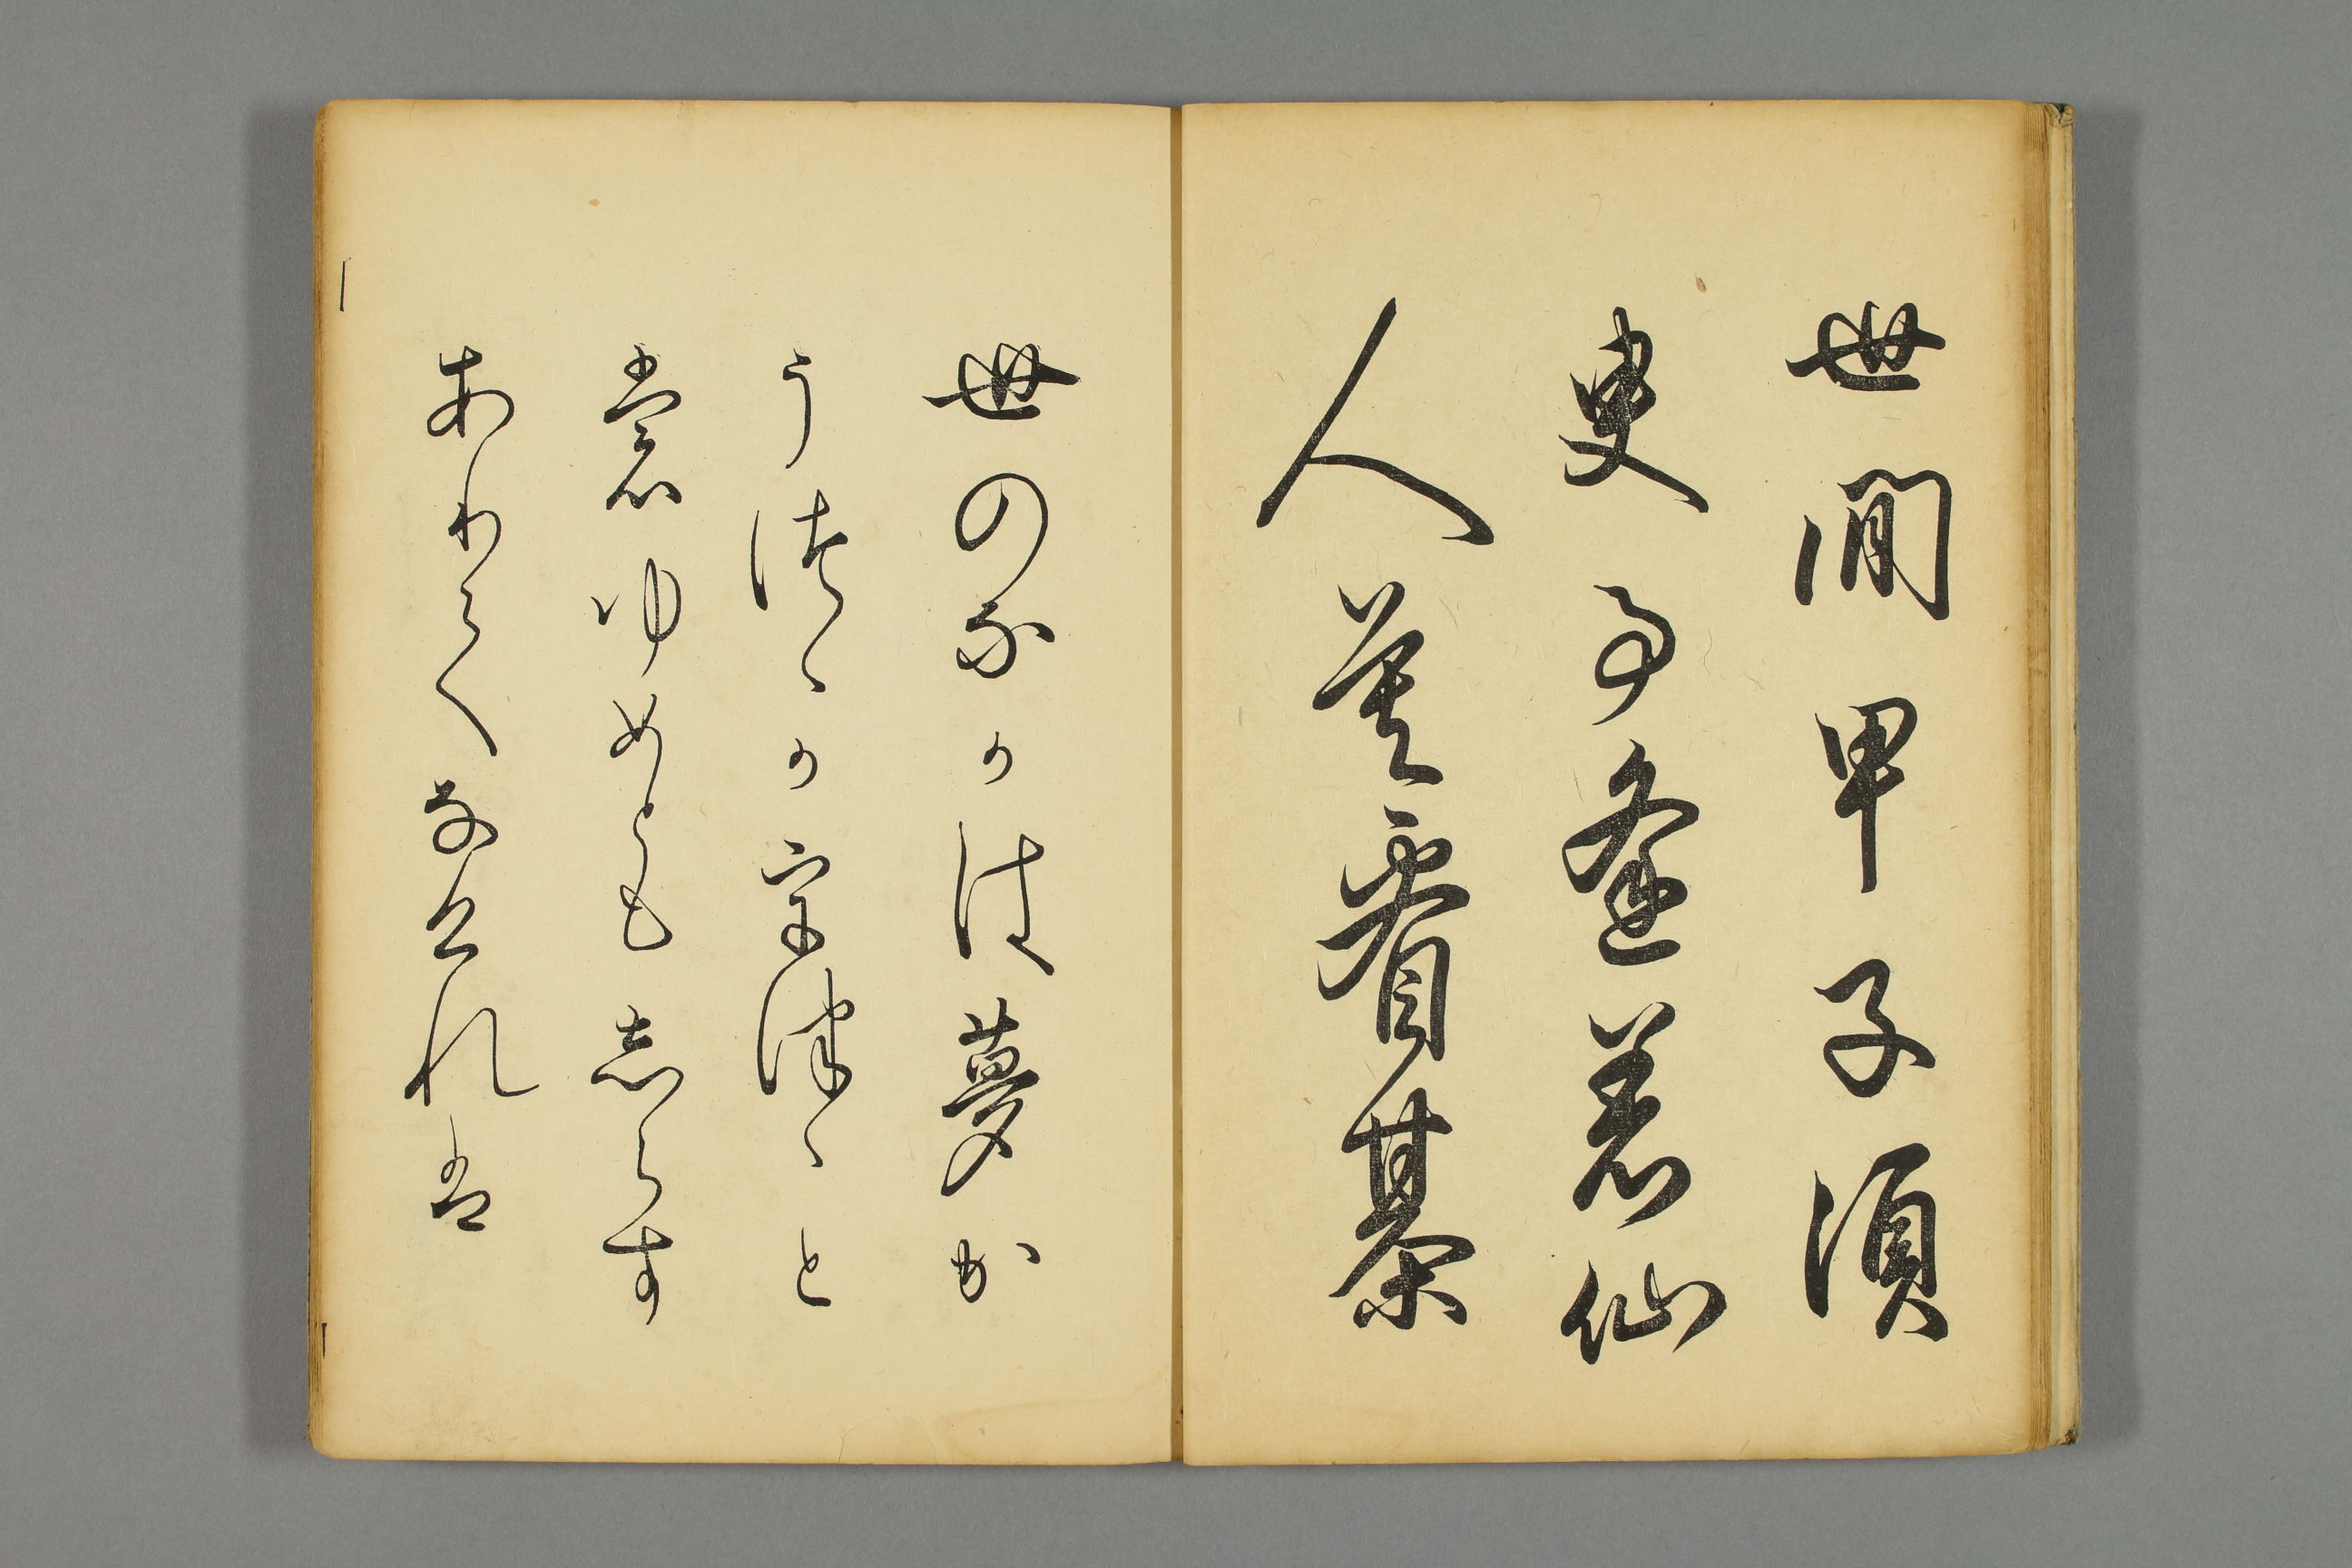 世間甲子須
臾事逢着仙
人莫看棊
世のなかは夢か
うつゝか宇津ゝと
裳ゆめとも志らす
ありてなけれは